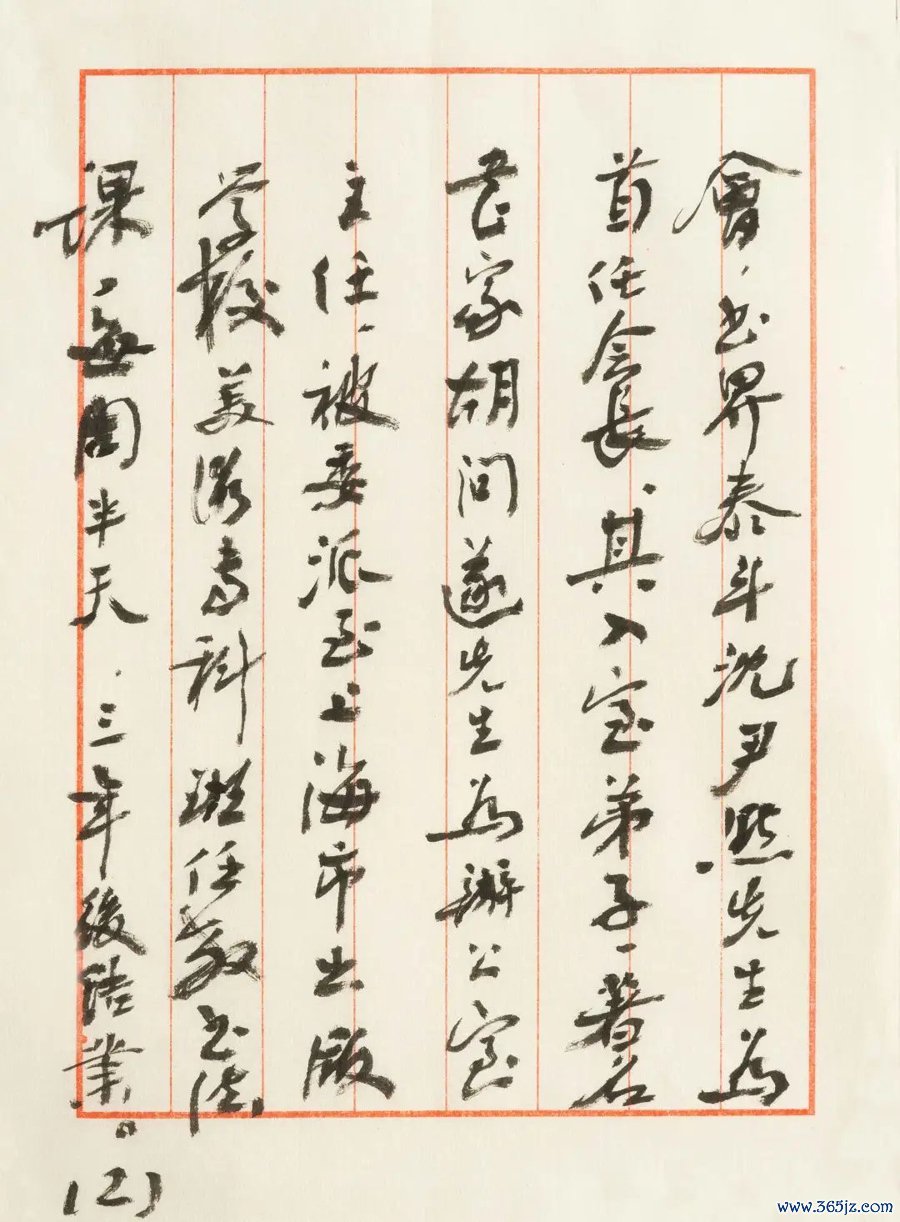 會,书界泰斗沈尹默先生為
首任会長,其入室弟子、著名
书家胡问遂先生為辦公室
主任,被委派至上海市出版
学校美術专科班任教书法
课,每周半天,三年後结業。
(2)
www.365jz.com